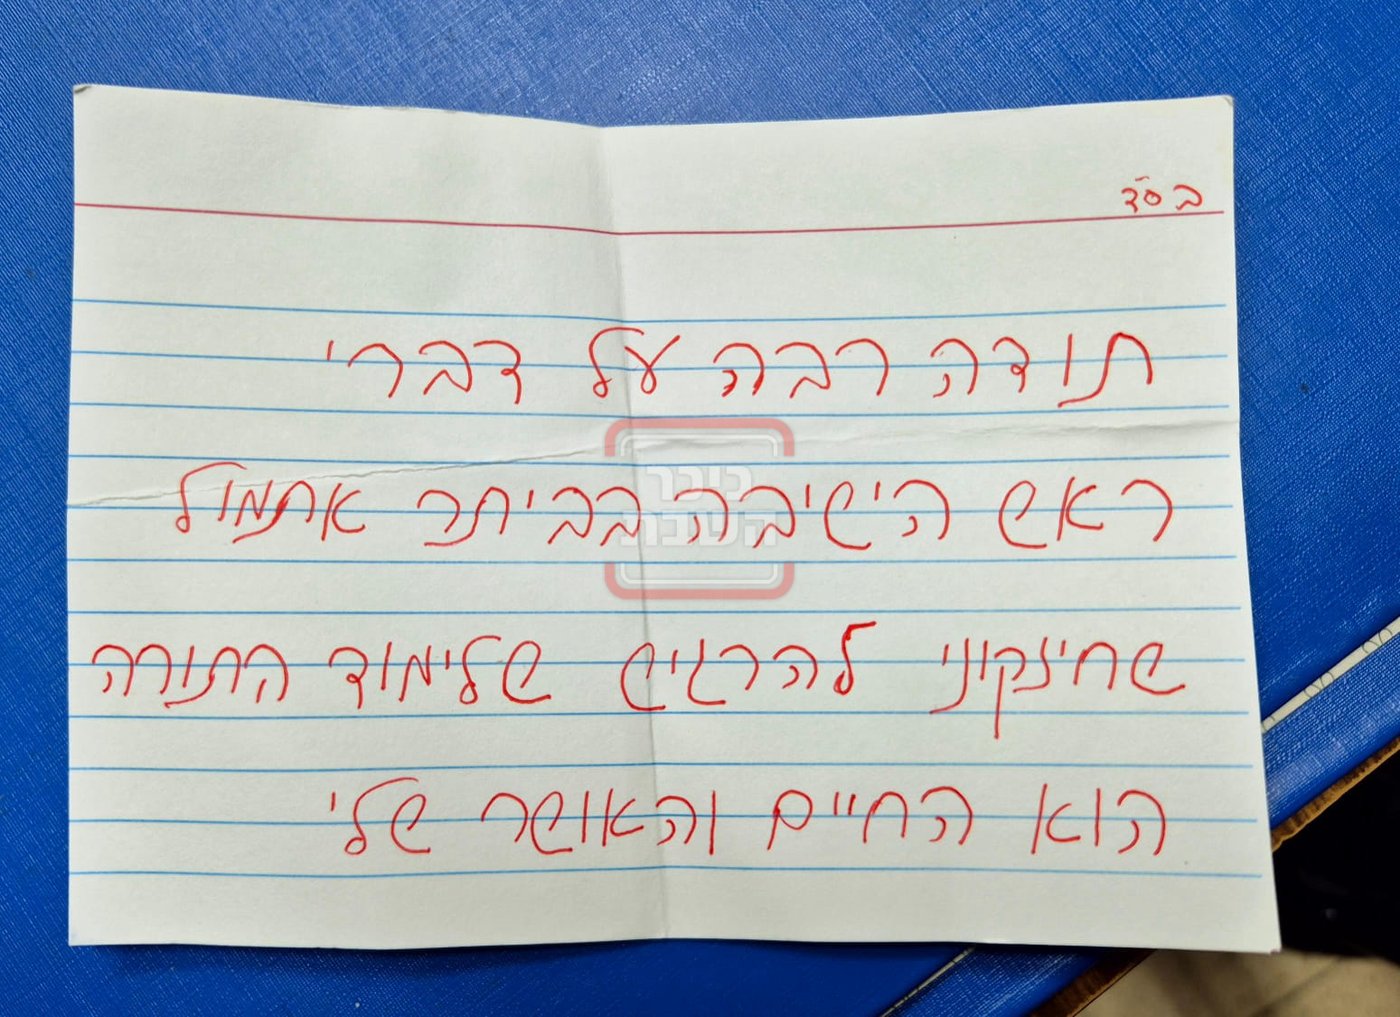 בס"ד
תודה רבה על דברי
ראש הישיבה בביתר אתמול
כיכר
השבת
שחיזקוני להרגיש שלימוד התורה
הוא החיים והאושר שלי